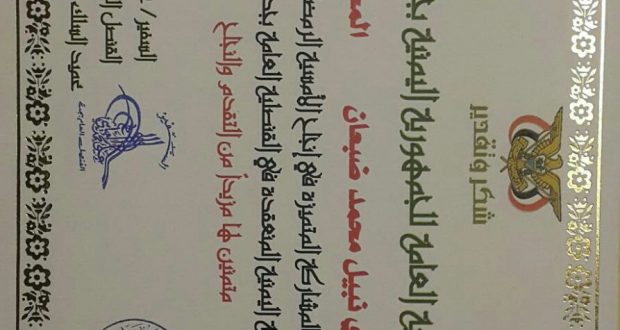 شكر وتقدير
ية العامة للجمهورية اليمنية بج
ي نبيل محمد ضبعان
المشاركة المتميزة في إنجاح الأمسية الرمض
ة اليمنية المنعقدة في القنصلية العامة بجد
متمنين لها مزيداً من التقدم والنجاح
السفير /
القنصل ال
عميد السلك